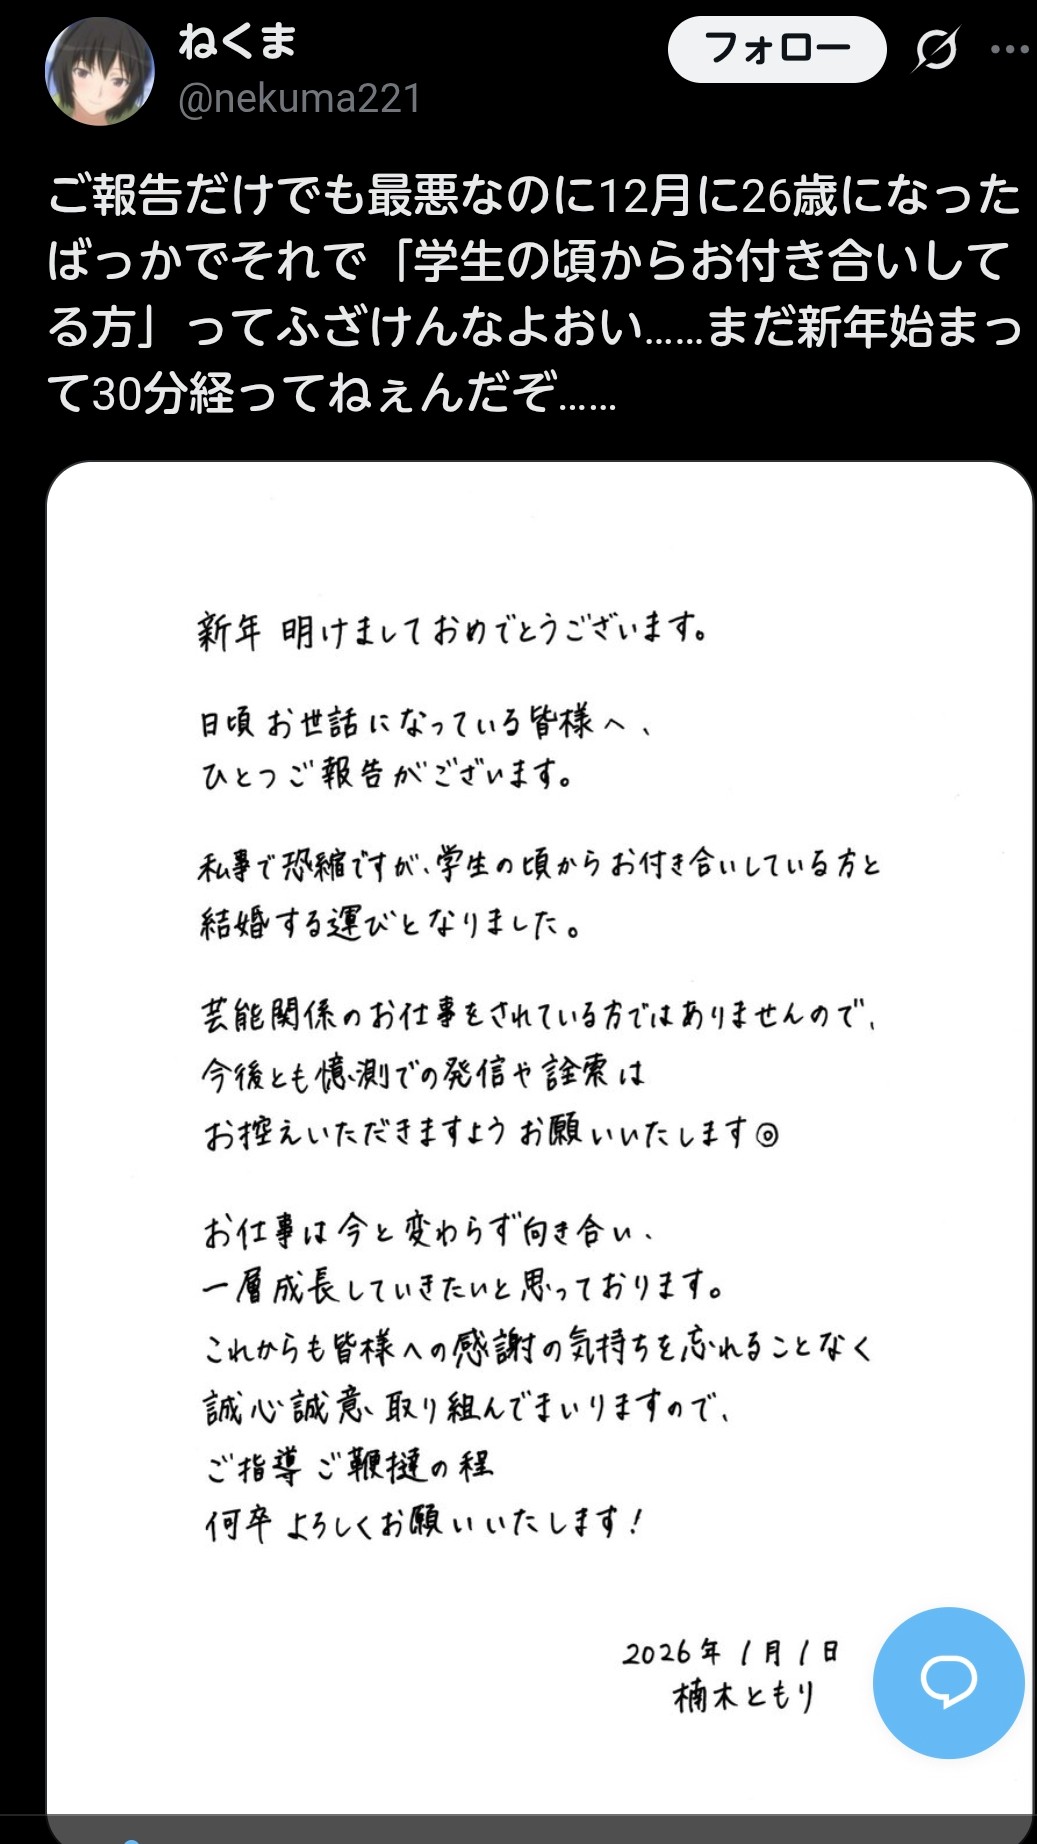 ねくま
フォロー
@nekuma221
ご報告だけでも最悪なのに12月に26歳になった
ばっかでそれで「学生の頃からお付き合いして
る方」ってふざけんなよおい……まだ新年始まっ
て30分経ってねぇんだぞ……
新年 明けましておめでとうございます。
日頃 お世話になっている皆様へ、
ひとつご報告がございます。
私事で恐縮ですが、学生の頃からお付き合いしている方と
結婚する運びとなりました。
芸能関係のお仕事をされている方ではありませんので、
今後とも憶測での発信や詮索は
お控えいただきますようお願いいたします◎
お仕事は今と変わらず向き合い、
一層成長していきたいと思っております。
これからも皆様への感謝の気持ちを忘れることなく
誠心誠意、取り組んでまいりますので、
ご指導 ご鞭撻の程
何卒 よろしくお願いいたします!
2026年 1月1日
楠木ともり